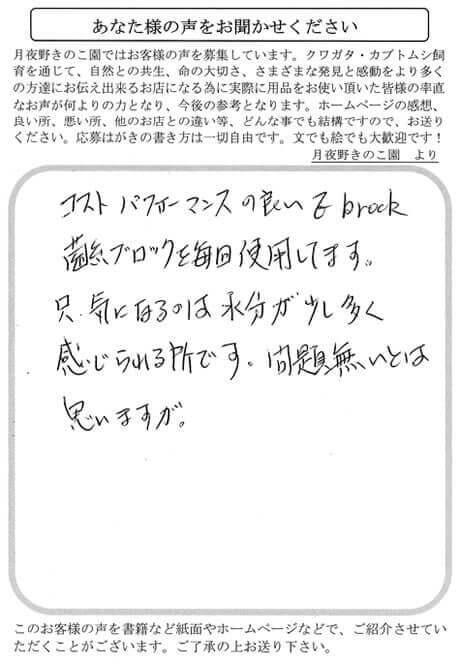 あなた様の声をお聞かせください
月夜野きのこ園ではお客様の声を募集しています。クワガタ・カブトムシ飼
育を通じて、自然との共生、命の大切さ、さまざまな発見と感動をより多く
の方達にお伝え出来るお店になる為に実際に用品をお使い頂いた皆様の率直
なお声が何よりの力となり、今後の参考となります。ホームページの感想、
良い所、悪い所、他のお店との違い等、どんな事でも結構ですので、お送り
ください。応募はがきの書き方は一切自由です。文でも絵でも大歓迎です！
月夜野きのこ園　より
コストパフォーマンスの良い E brock
菌糸ブロックを毎回使用してます。
只、気になるのは水分が少し多く
感じられる所です。問題無いとは
思いますが。
このお客様の声を書籍など紙面やホームページなどで、ご紹介させてい
ただくことがございます。ご了承の上お送り下さい。